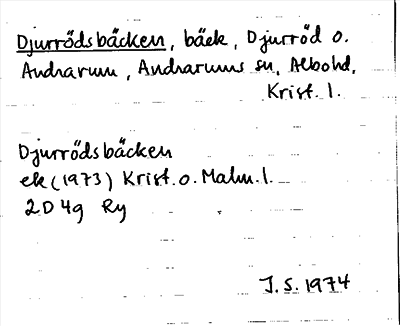 Djurrödsbäcken, bäck, Djurröd o.
Andrarum, Andrarums sn, Albohd,
Krist. l.
Djurrödsbäcken
ek (1973) Krist. o. Malm. l.
2D 4g Ry
J. S. 1974